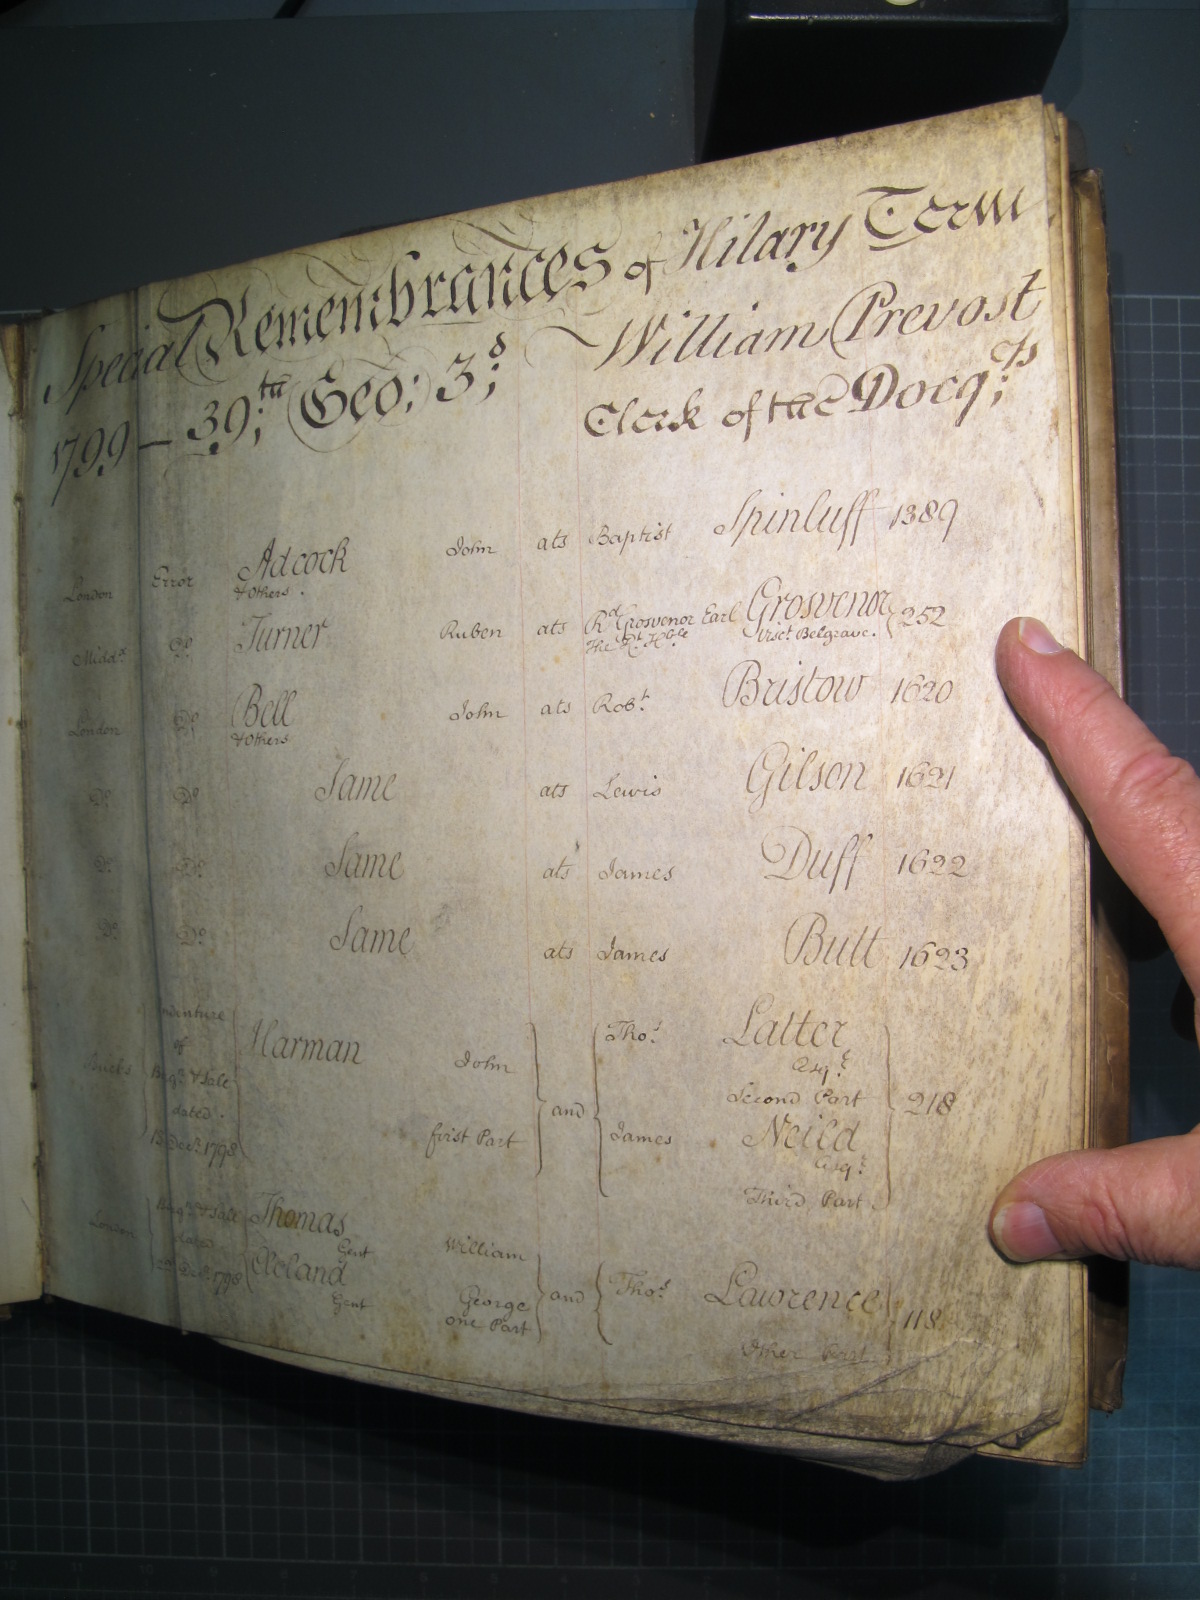 Special Remembrances of Hilary Term
1799 – 39:th Geo: 3:d William Prevost
Clerk of the Docq:ts
London Error Adcock John ats Baptist Spinluff 1389
& Others.
Midd.x Do. Turner Ruben ats Rd. Grosvenor Earl Grosvenor 252
The Rt. Hble Visct. Belgrave.
London Do. Bell John ats Robt. Bristow 1620
& Others
Do. Do. Same ats Lewis Gilson 1621
Do. Do. Same ats James Duff 1622
Do. Do. Same ats James Butt 1623
Bucks Indenture of Barg.n & Sale dated 13 Decr. 1798
Harman John
first Part
and
Thos. Latter
Esqr.
Second Part
James Neild
Esqr.
Third Part
218
London Barg.n & Sale dated Decr. 1798
Thomas William
Gent
Cleland George
Gent one Part
and
Thos. Lawrence
Other Part
118